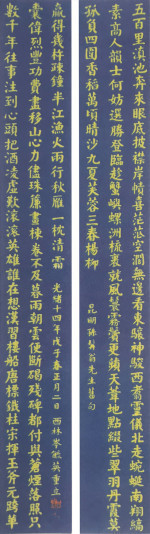 五百里滇池奔來眼底披襟岸幘喜茫茫空闊無邊看東驤神駿西翥靈儀北走蜿蜒南翔縞
素高人韻士何妨選勝登臨趁蟹嶼螺洲梳裹就風鬟霧鬢更蘋天葦地點綴些翠羽丹霞莫
孤負四圍香稻萬頃晴沙九夏芙蓉三春楊柳
昆明孫髯翁先生舊句
數千年往事注到心頭把酒凌虛歎滾滾英雄誰在想漢習樓船唐標鐵柱宋揮玉斧元跨革
囊偉烈豐功費盡移山心力儘珠簾畫棟卷不及暮雨朝雲便斷碣殘碑都付與蒼煙落照只
贏得幾杵疎鐘半江漁火兩行秋雁一枕清霜
光緒十四年戊子春正月二日西林岑毓英重立